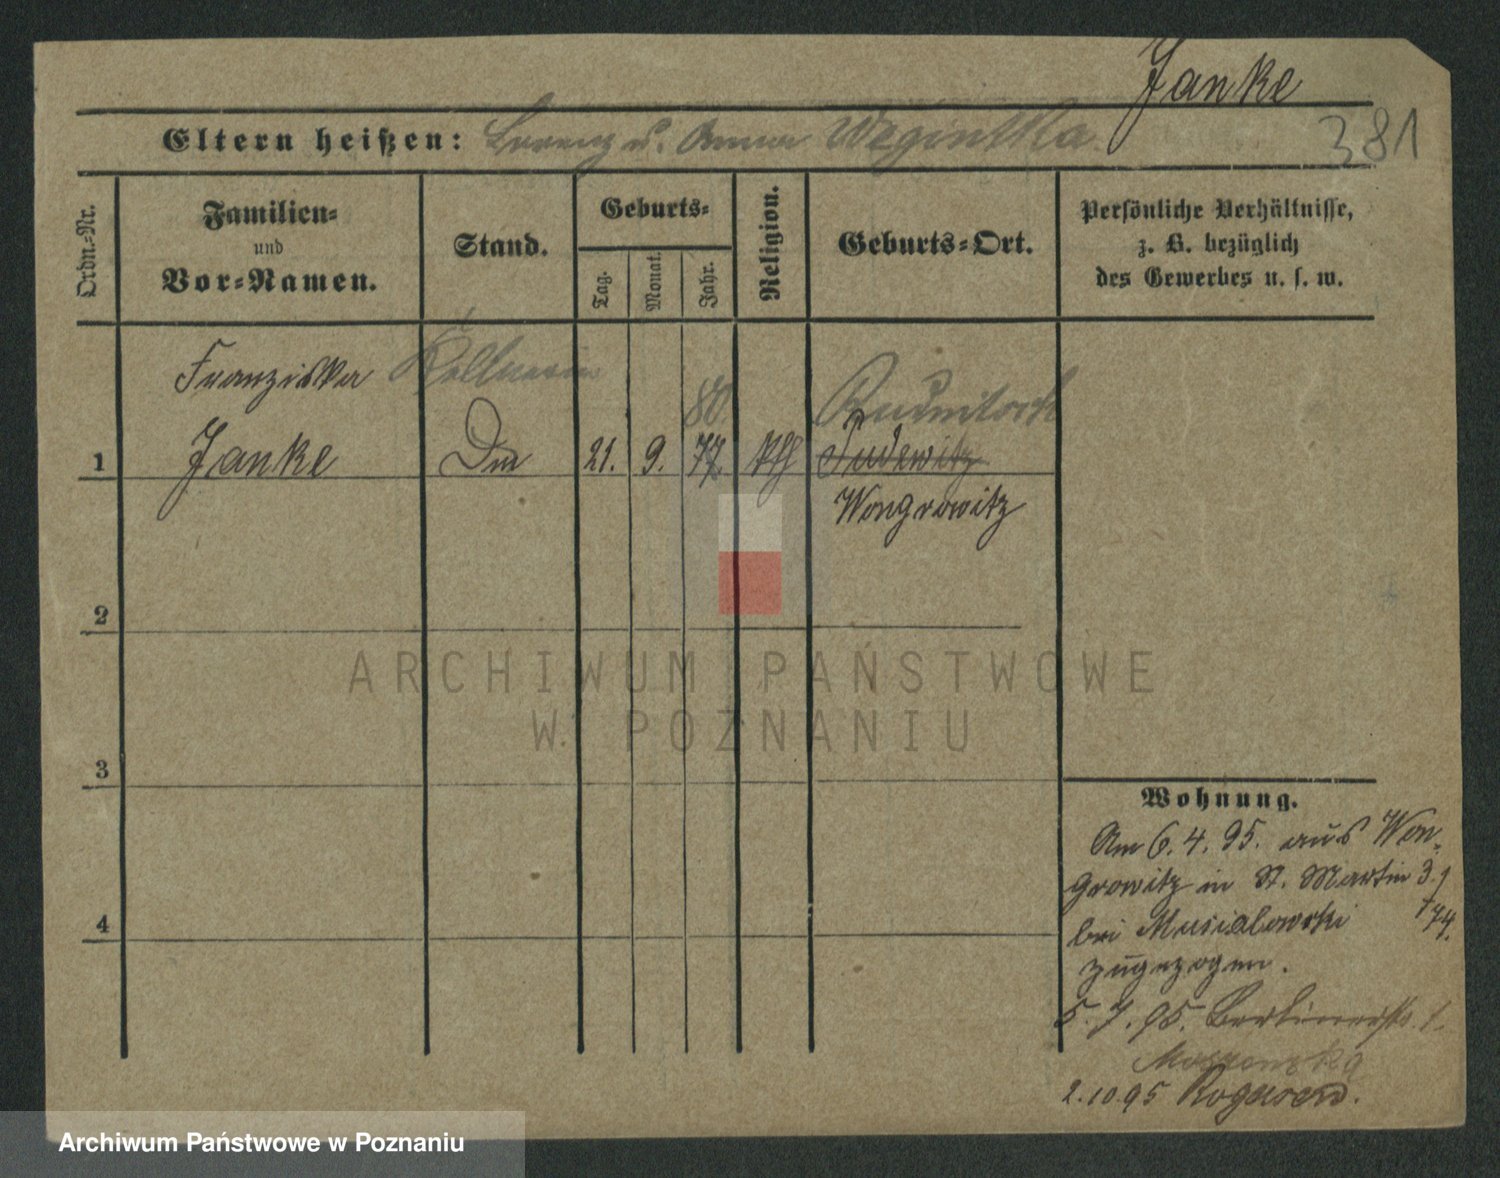 Janke
381
Eltern heißen: Lorenz u. Anna
Ordn.-Nr.
Familien-
und
Vor-Namen.
Stand.
Geburts-
Tag.
Monat.
Jahr.
Religion.
Geburts-Ort.
Persönliche Verhältnisse,
z. B. bezüglich
des Gewerbes u. s. w.
Franziska Kellnerin
80
1 Janke 21. 9. 77. Pudewitz
Wongrowitz
2
3
4
Wohnung.
Am 6. 4. 95. aus Won-
growitz in St. Martin 3.
bei Musialowski 174.
zugezogen.
5. 7. 95. Berlinerstr. 1.
2.10.95 Rogasen.
ARCHIWUM PAŃSTWOWE
W POZNANIU
Archiwum Państwowe w Poznaniu